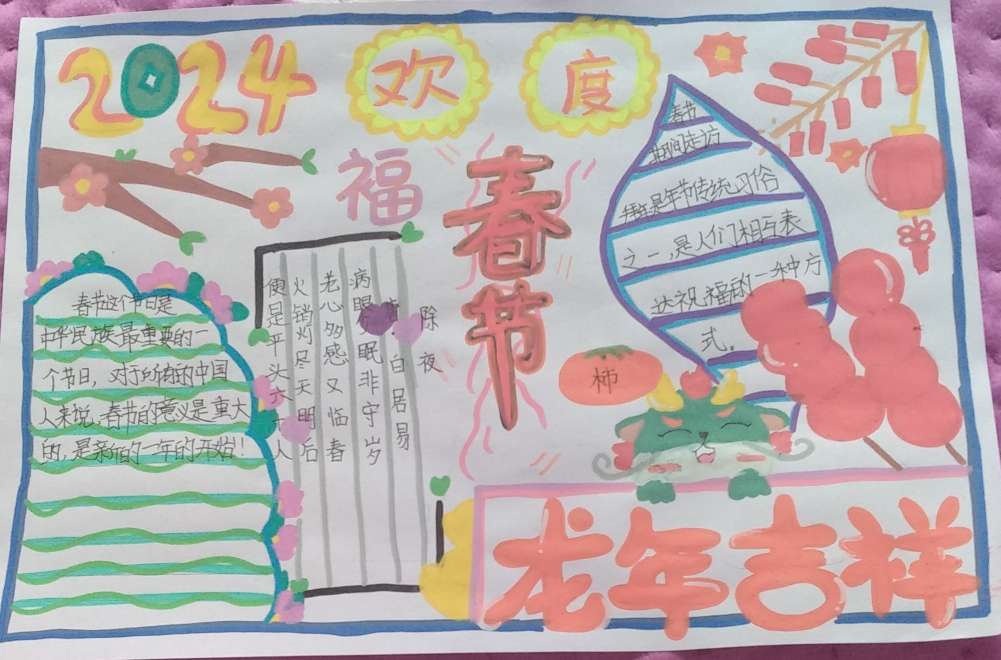 2024
欢度
福
春节
春节
期间走访
拜年是年节传统习俗
之一,是人们相互表
达祝福的一种方
式。
除夜
白居易
病眼眠非守岁
老心多感又临春
火销灯尽天明后
便是平头六十人
春节这个节日是
中华民族最重要的一
个节日,对于所有的中国
人来说,春节的意义是重大
的,是新的一年的开始!
柿
龙年吉祥